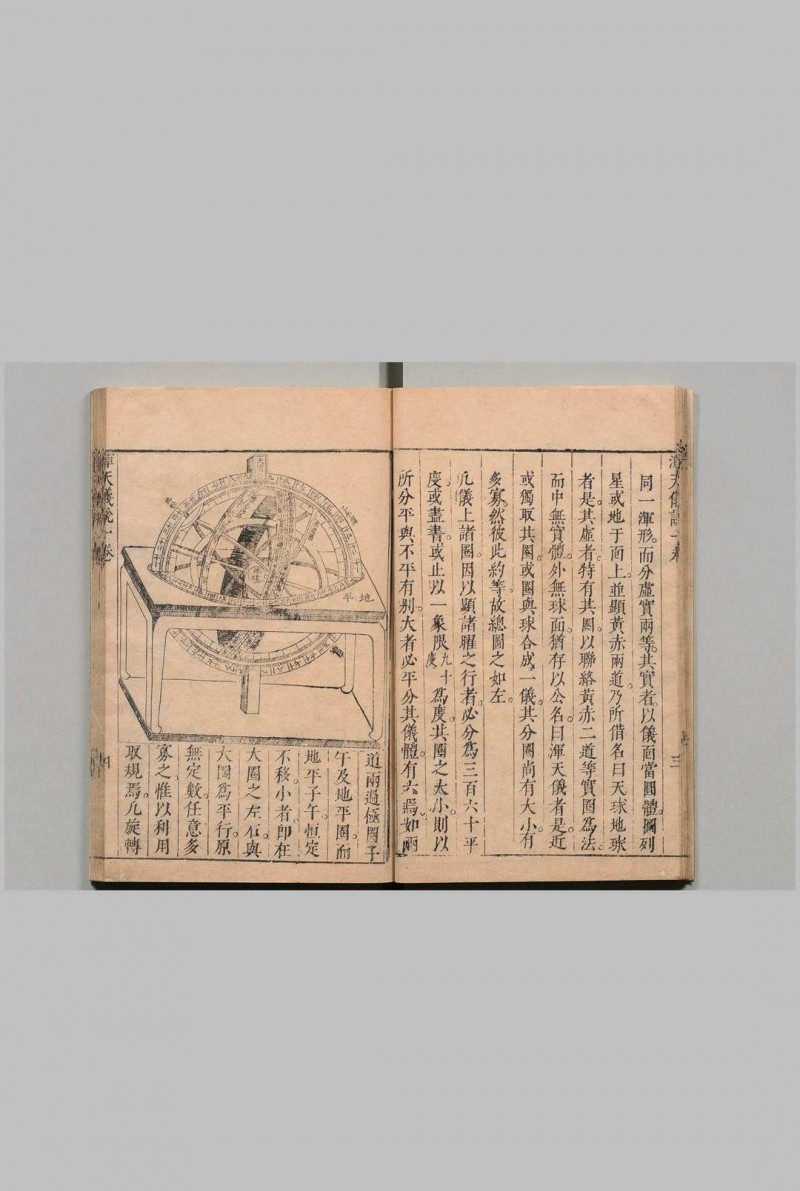 渾天儀說一卷
三
同一渾形而分虛實兩等其實者以儀面當圓體圖列
星或地于面上並顯黃赤兩道乃所借名曰天球地球
者是其虛者特有其圈以聯絡黃赤二道等實圈爲法
而中無實體外無球面猶存以公名曰渾天儀者是近
或獨取其圈或圈與球合成一儀其分圈尚有大小有
多寡然彼此約等故總圖之如左
凡儀上諸圈因以顯諸曜之行者必分爲三百六十平
度或盡書或止以一象限九十度爲度其圈之大小則以
所分平與不平有別大者必平分其儀體有六焉如兩
地平
道兩過極圈子
午及地平圈而
地平子午恒定
不移小者即在
大圈之左右與
大圈爲平行原
無定數任意多
寡之惟以利用
取規焉凡旋轉
渾天儀說一卷
四